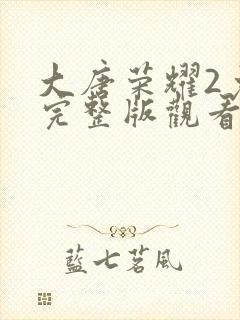 大唐荣耀2
完整版觀看
藍七茗風